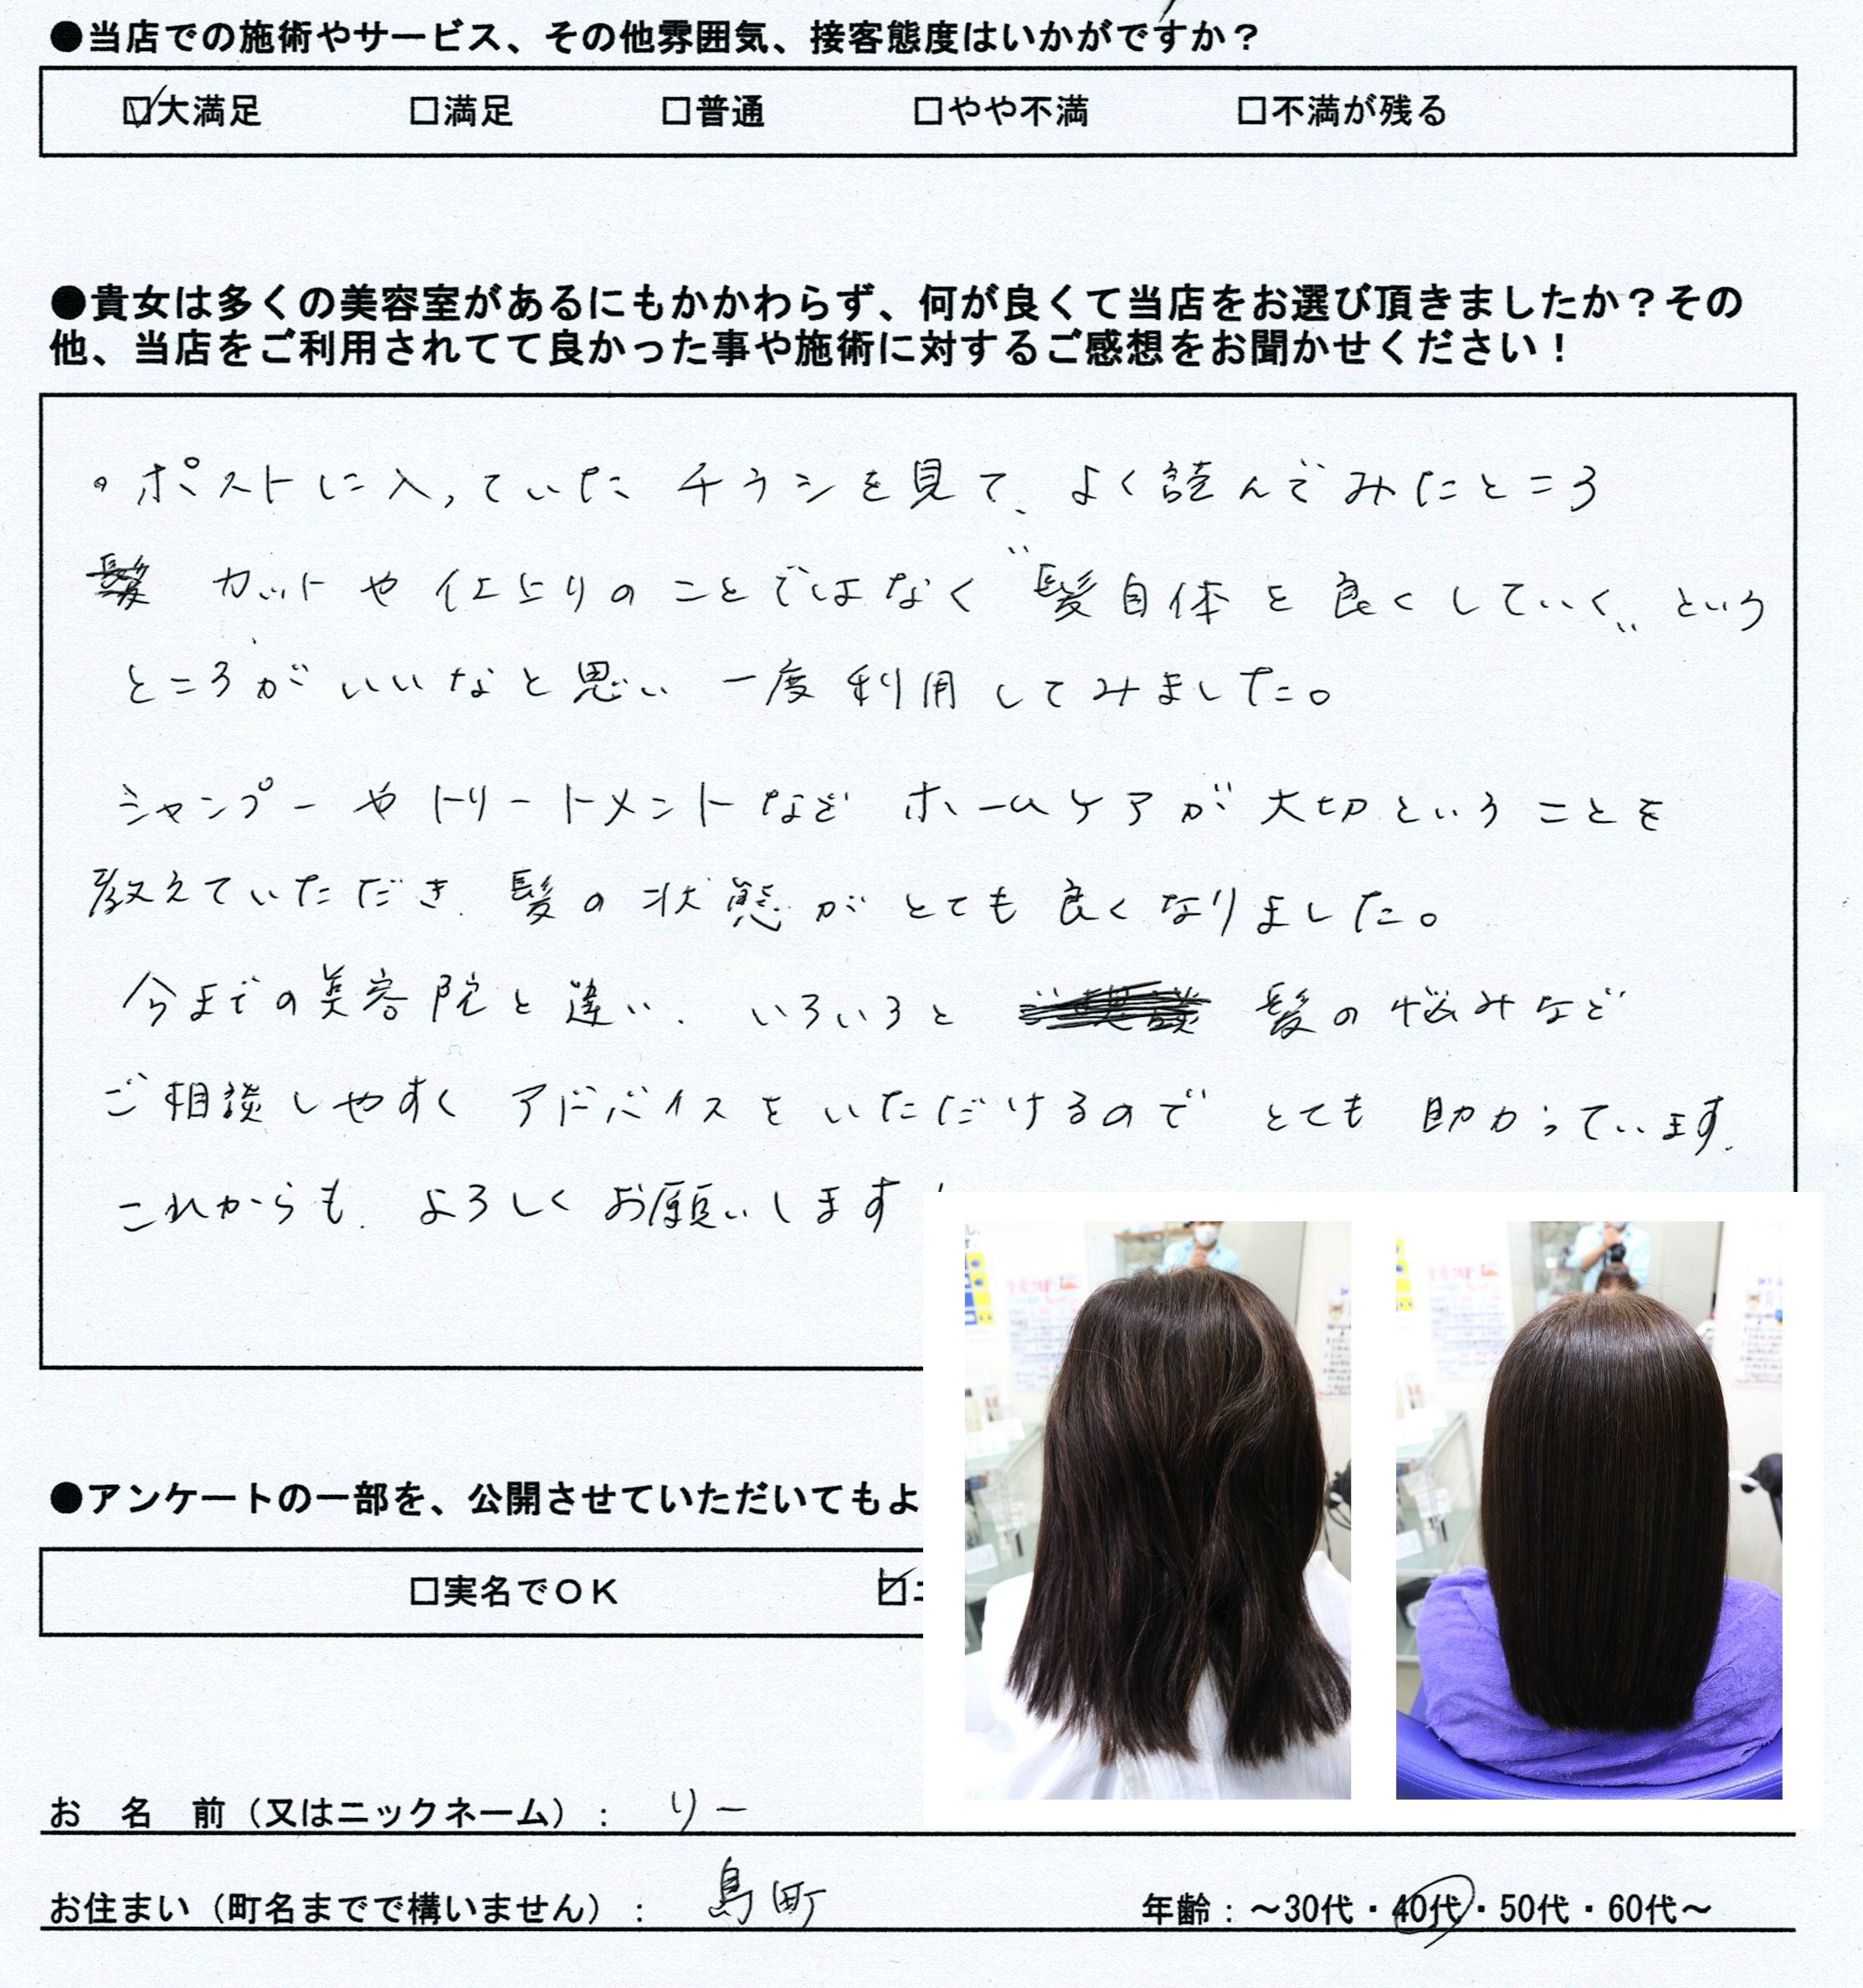 ●当店での施術やサービス、その他雰囲気、接客態度はいかがですか？
☑大満足 □満足 □普通 □やや不満 □不満が残る
●貴女は多くの美容室があるにもかかわらず、何が良くて当店をお選び頂きましたか？その
他、当店をご利用されてて良かった事や施術に対するご感想をお聞かせください！
・ポストに入っていたチラシを見て、よく読んでみたところ
カットや仕上りのことではなく"髪自体を良くしていく"という
ところがいいなと思い一度利用してみました。
シャンプーやトリートメントなどホームケアが大切ということを
教えていただき、髪の状態がとても良くなりました。
今までの美容院と違い、いろいろと 髪の悩みなど
ご相談しやすくアドバイスをいただけるのでとても助かっています。
これからも、よろしくお願いします
●アンケートの一部を、公開させていただいてもよ
□実名でＯＫ ☑
お 名 前（又はニックネーム）： りー
お住まい（町名までで構いません）： 島町 年齢：～30代・40代・50代・60代～